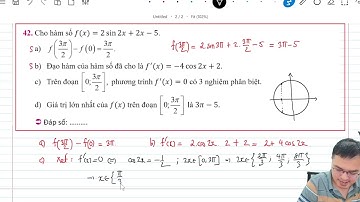 Untitled - 2 / 2 - Fit (102%)
42. Cho hàm số f(x) = 2 sin 2x + 2x − 5.
S a) f(3π/2) − f(0) = 3π/2.
f(3π/2) = 2 sin3π + 2. 3π/2 − 5 = 3π−5
S b) Đạo hàm của hàm số đã cho là f'(x) = −4 cos 2x + 2.
c) Trên đoạn [0; 3π/2], phương trình f'(x) = 0 có 3 nghiệm phân biệt.
d) Giá trị lớn nhất của f(x) trên đoạn [0; 3π/2] là 3π − 5.
Đáp số:
a) f(3π/2) − f(0) = 3π b) f'(x) = 2.cos2x 2 + 2 = 2 + 4cos2x
c) Xét: f'(x)=0 ⇔ cos2x = −1/2 ; 2x∈[0,3π] ⇒ 2x∈{2π/3; 4π/3; 8π/3}
⇒ x∈{π/3